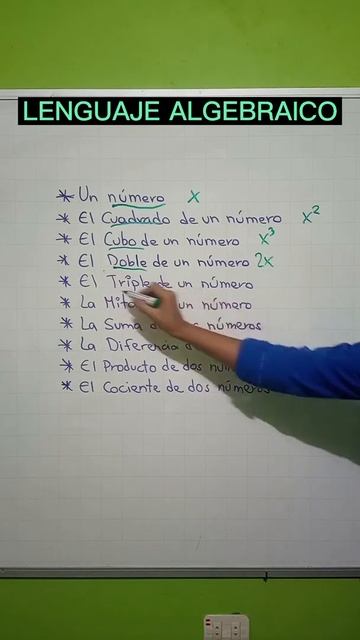 LENGUAJE ALGEBRAICO
* Un número x
* El Cuadrado de un número x²
* El Cubo de un número x³
* El Doble de un número 2x
* El Triple de un número
* La un número
* La Suma números
* La Diferencia
* El Producto de dos
* El Cociente de dos números